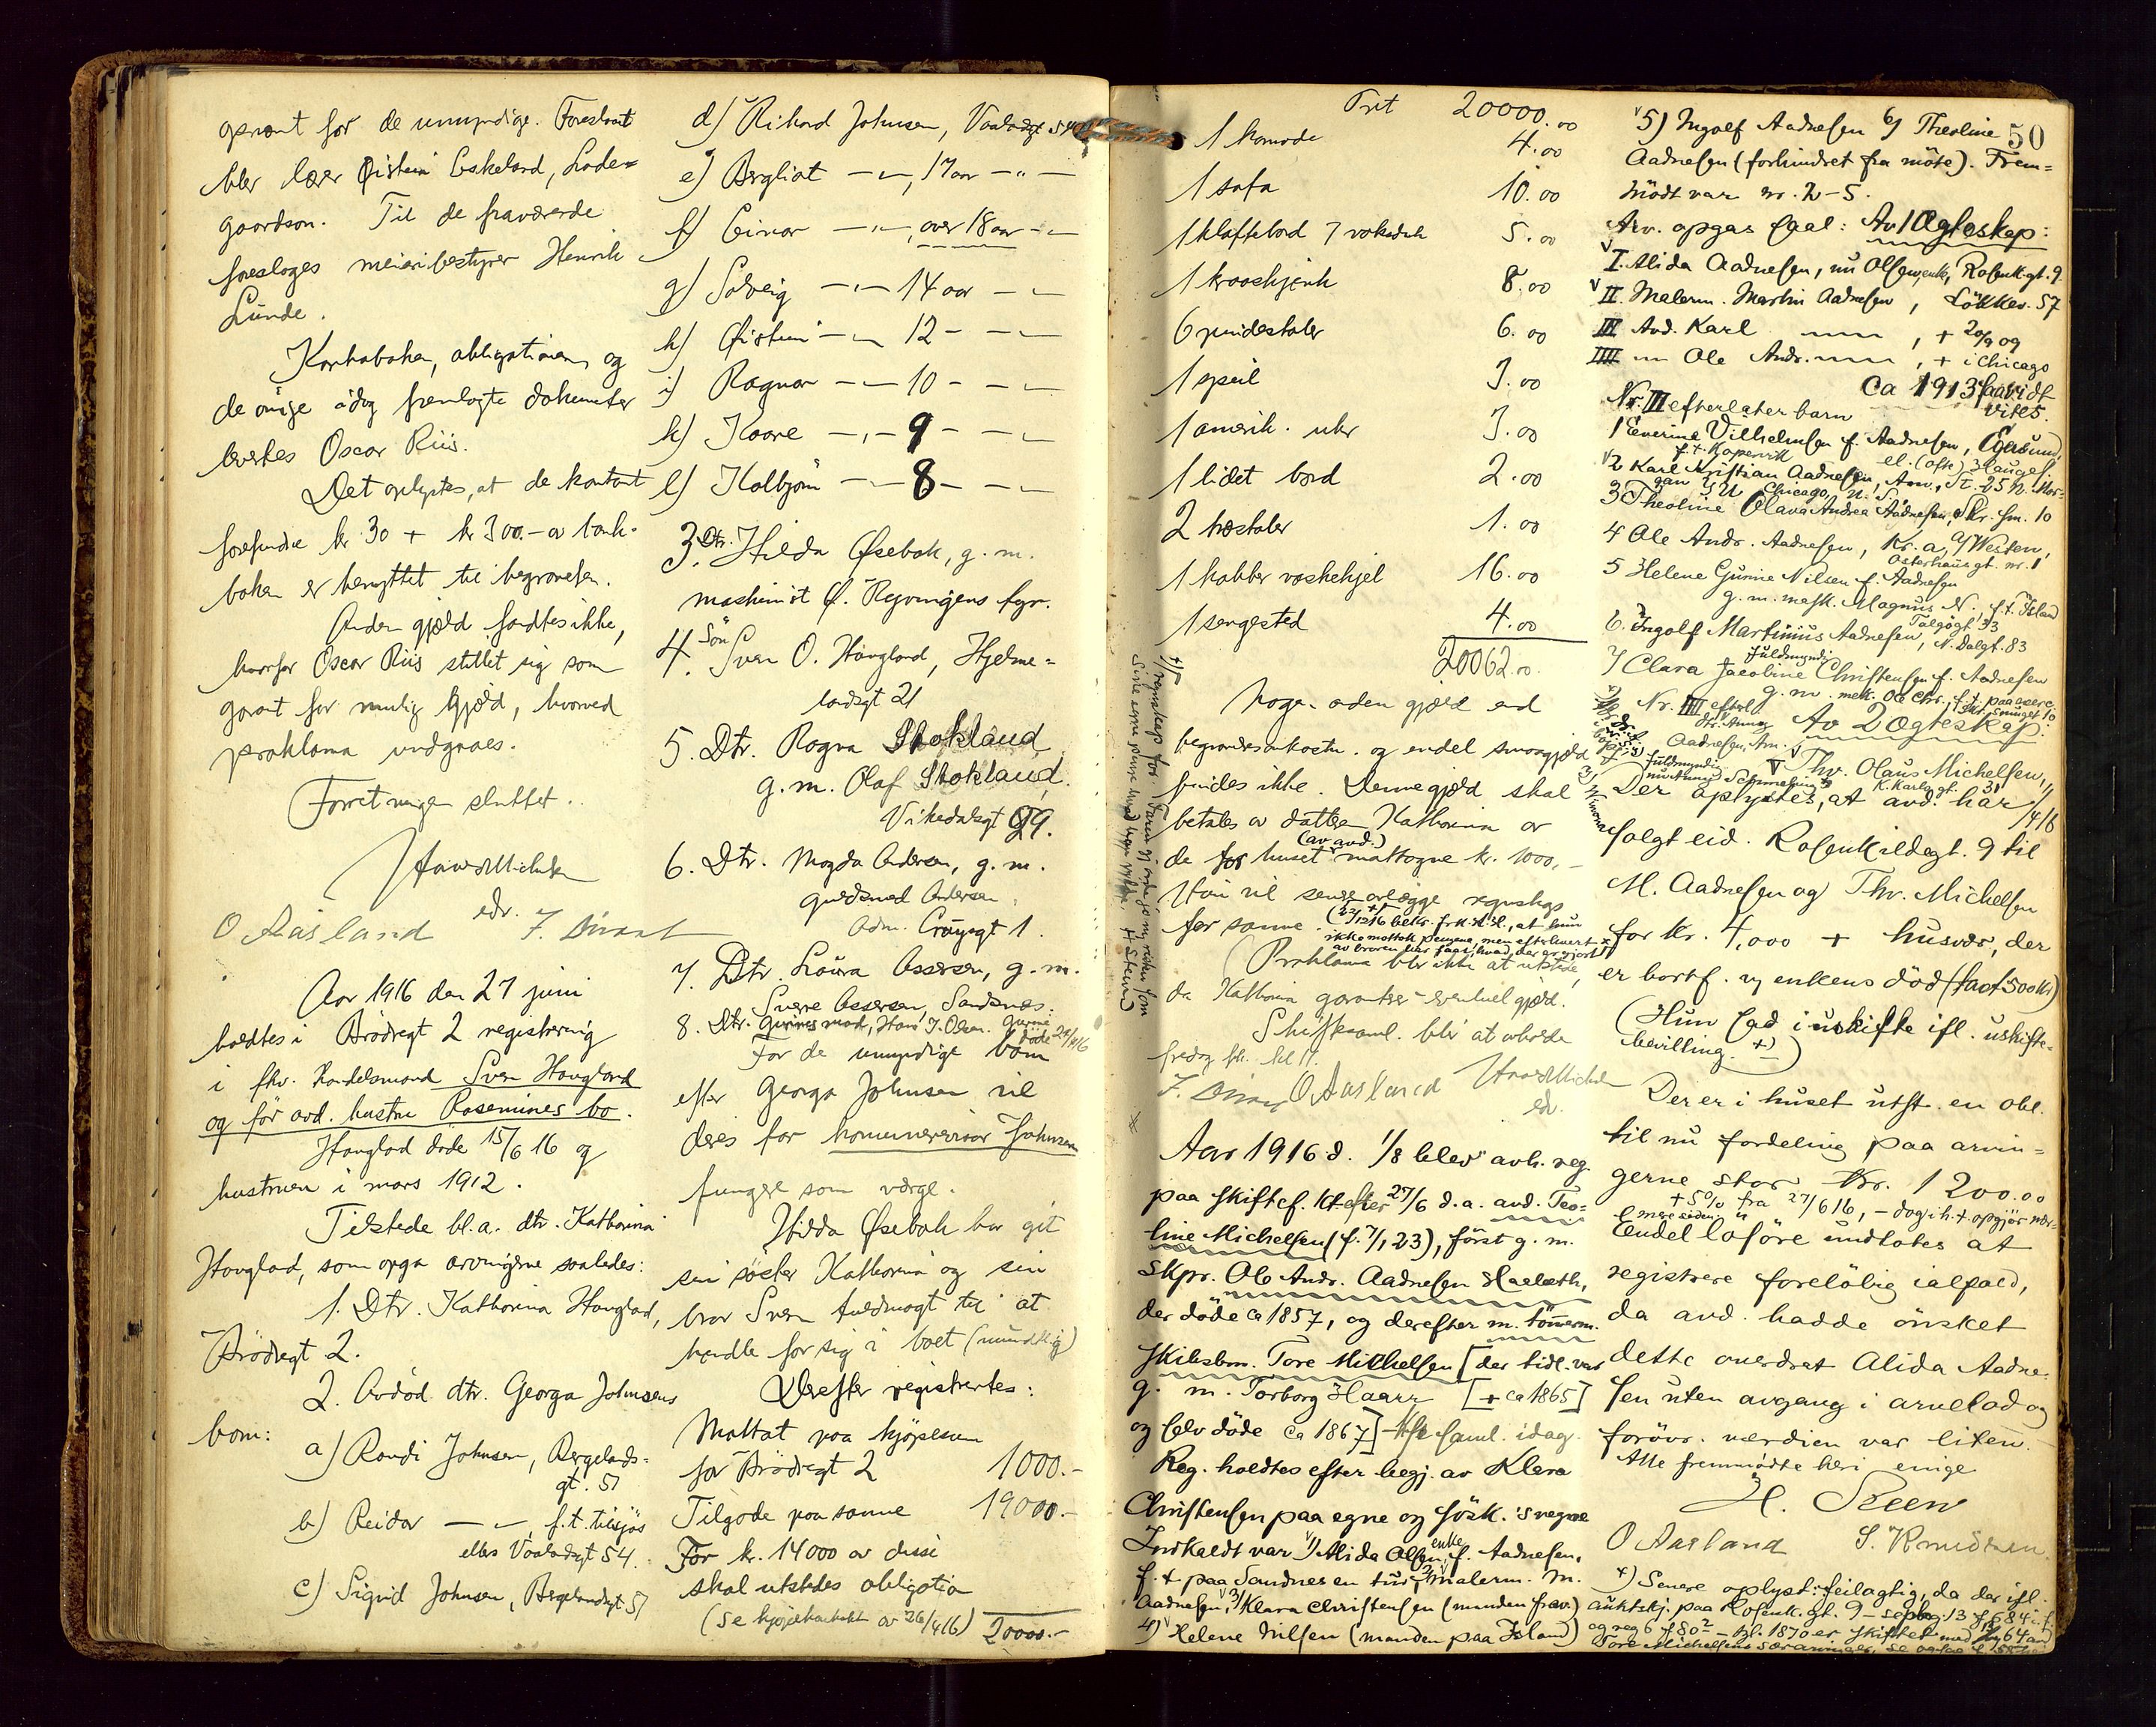 opnævnt for de umyndige. Foreslaat
blev lærer Øistein Eskeland, Lade=
gaardsvn. Til de fraværende
foresloges meieribestyrer Henrik
Lunde.
Kontrabøker, obligationen og
de øvrige idag fremlagte dokumenter
levertes Oscar Riis.
Det oplystes, at de kontant
forefundne kr 30 + kr 300.- av bank-
boken er benyttet til begravelsen.
Anden gjæld fandtes ikke,
hvorfor Oscar Riis stillet sig som
garant for mulig gjæld, hvorved
proklama undgaaes.
Forretningen sluttet.
Hans Michelsen
edv.
O Aasland
Aar 1916 den 27 juni
holdtes i Brödregt 2 registrering
i fhv. Handelsmand Sven Haugland
og før avd. hustru Rosemines bo.
Haugland døde 15/6 16 og
hustruen i mars 1912.
Tilstede bl.a. dtr. Kathrina
Haugland, som opga arvingerne saaledes:
1. Dtr. Kathrina Haugland,
Brödregt 2.
2. Avdød dtr. Georga Johnsens
barn:
a) Randi Johnsen, Bergelands=
gt. 51
b) Reidar —"—, f.t. tilsjøs
ellers Vaalandsgt 54.
c) Sigrid Johnsen, Bergelandsgt 51
d) Rikard Johnsen, Vaalandsgt 54
e) Bergliot —"—, 17 aar —"—
f) Einar —"—, over 18 aar —"—
g) Solveig —"— 14 aar —"—
h) Øistein —"— 12 — —"—
i) Ragnar —"— 10 — —"—
k) Kaare —"— 9 — —"—
l) Kolbjørn —"— 8 — —"—
3. Dtr. Hilda Øsebak, g. m.
maskinist Ø. Ryvingens fyr.
4. Søn Sven O. Haugland, Hjelme=
landsgt 21
5. Dtr. Ragna Stokland,
g. m. Olaf Stokland,
Vikedalsgt 99.
6. Dtr. Magda Andersen, g. m.
guldsmed Andersen,
Adm. Cruysgt 1.
7. Dtr. Laura Assersen, g. m.
Sverre Assersen, Sandnes.
8. Dtr. Gurines mand, Hans J. Olsen. Gurine
døde 24/4 16
For de umyndige barn
efter Georga Johnsen vil
deres far kommunerevisor Johnsen
fungere som værge.
Hilda Øsebak har git
sin søster Kathrina og sin
bror Sven fuldmagt til at
handle for sig i boet (mundtlig)
Derefter registrertes:
Mottat paa kjøpesum
for Brödregt 2 1000.-
Tilgode paa samme 19000.-
For kr. 14000 av disse
skal utstedes obligation
(se kjøpekontrakt av 26/4 16) 20000.-
50
Trt 20000.00
1 komode 4.00
1 sofa 10.00
1 klaffebord 7 voksduk 5.00
1 kroashjenk 8.00
6 pindestoler 6.00
1 speil 3.00
1 amerik. uhr 3.00
1 lidet bord 2.00
2 træstoler 1.00
1 kobber vaskekjel 16.00
1 sengested 4.00
20062.00
Nogen anden gjæld end
begravelsesomkostn. og endel smaagjæld
findes ikke. Denne gjæld skal
betales av datteren Kathrina av
(av avd.)
de for huset mottagne kr. 1000.-
Hun vil senere avlægge regnskap
for samme.
ikke mottok pengene, men efterlevert
av broren har faat, hvad der er gjort
Proklama blev ikke at utstede,
da Kathrina garanterer eventuel gjæld.
Skiftesaml. blev at avholde
fredag
O Aasland Hans Michelsen
edv.
Aar 1916 d. 1/8 blev avh. reg.
paa skiftef. kt efter 27/6 d.a. avd. Teo=
line Michelsen (f. 7/1 23), först g. m.
skpr. Ole Andr. Aadnesen Haaleth,
der döde ca 1857, og derefter m. tömerm.
skibsbm. Tore Michelsen [der tidl. var
g. m. Torborg Haarr [+ ca 1865]
og selv döde ca 1867] saml. idag.
Reg. holdtes efter begj. av Klara
Christensen paa egne og sösk.'s vegne
Indkaldt var 1) Alida Olsen, enke f. Aadnesen,
f.t paa Sandnes en tur, 2) malerm. M.
Aadnesen, 3) Klara Christensen (manden frav.)
4) Helene Nilsen (manden paa Island)
5) Ingolf Aadnesen 6) Theoline
Aadnesen (forhindret fra möte). Frem=
mödt var nr. 2-5.
Arv. opgas saal: Av 1 Ægteskap:
I. Alida Aadnesen, nu Olsen, enke, Rosenk.gt. 9
II. Malerm. Martin Aadnesen, Lökkev. 57
III Avd. Karl —"—, + 20/9 09
IIII —"— Ole Andr. —"—, + i Chicago
ca 1913 saavidt
vites.
Nr. III efterlater barn
1 Severine Vilhelmsen f. Aadnesen, Egersund,
f.t. Kopervik el. (ofte) Haugesund
2 Karl Kristian Aadnesen, Am., St. 25 N. Mor=
gan Chicago, U.S.
3 Theoline Olava Andrea Aadnesen, Skr. sm. 10
4 Ole Andr. Aadnesen, Kr.a, a/ Westen,
Osterhausgt. nr. 1
5 Helene Gurine Nilsen f. Aadnesen
g. m. mask. Magnus N., f.t. Island
6. Ingolf Martinius Aadnesen, N. Dalgt. 83
7 Clara Jacobine Christensen f. Aadnesen
g. m. mek. Ole Chr., f.t. paa
Nr. IIII efterl.
Av 2 Ægteskap:
V Thv. Olaus Michelsen,
K. Karlsgt. 31
Der oplystes, at avd. har 1/4 16
solgt eid. Rosenkildegt. 9 til
M. Aadnesen og Thv. Michelsen
for kr. 4,000 + husvær, der
er bortf. v. enkens död (takst 500 Kr)
(Hun sad i uskifte ifl. uskifte=
bevilling. +)
Der er i huset utst. en obl.
til nu fordeling paa arvin=
gerne stor kr. 1200.00
+ 5% fra 27/6 16,
Endel lösöre undlotes at
registrere forelöbig ialfald,
da avd. hadde önsket
dette overdrat Alida Aadne=
sen uten avgang i arvelod og
forövr. værdien var liten.
Alle fremmödte heri enige
H. Steen
O Aasland S. Knudsen
+) Senere oplyst: feilagtig, da der ifl.
auktskj. paa Rosenk.gt. 9